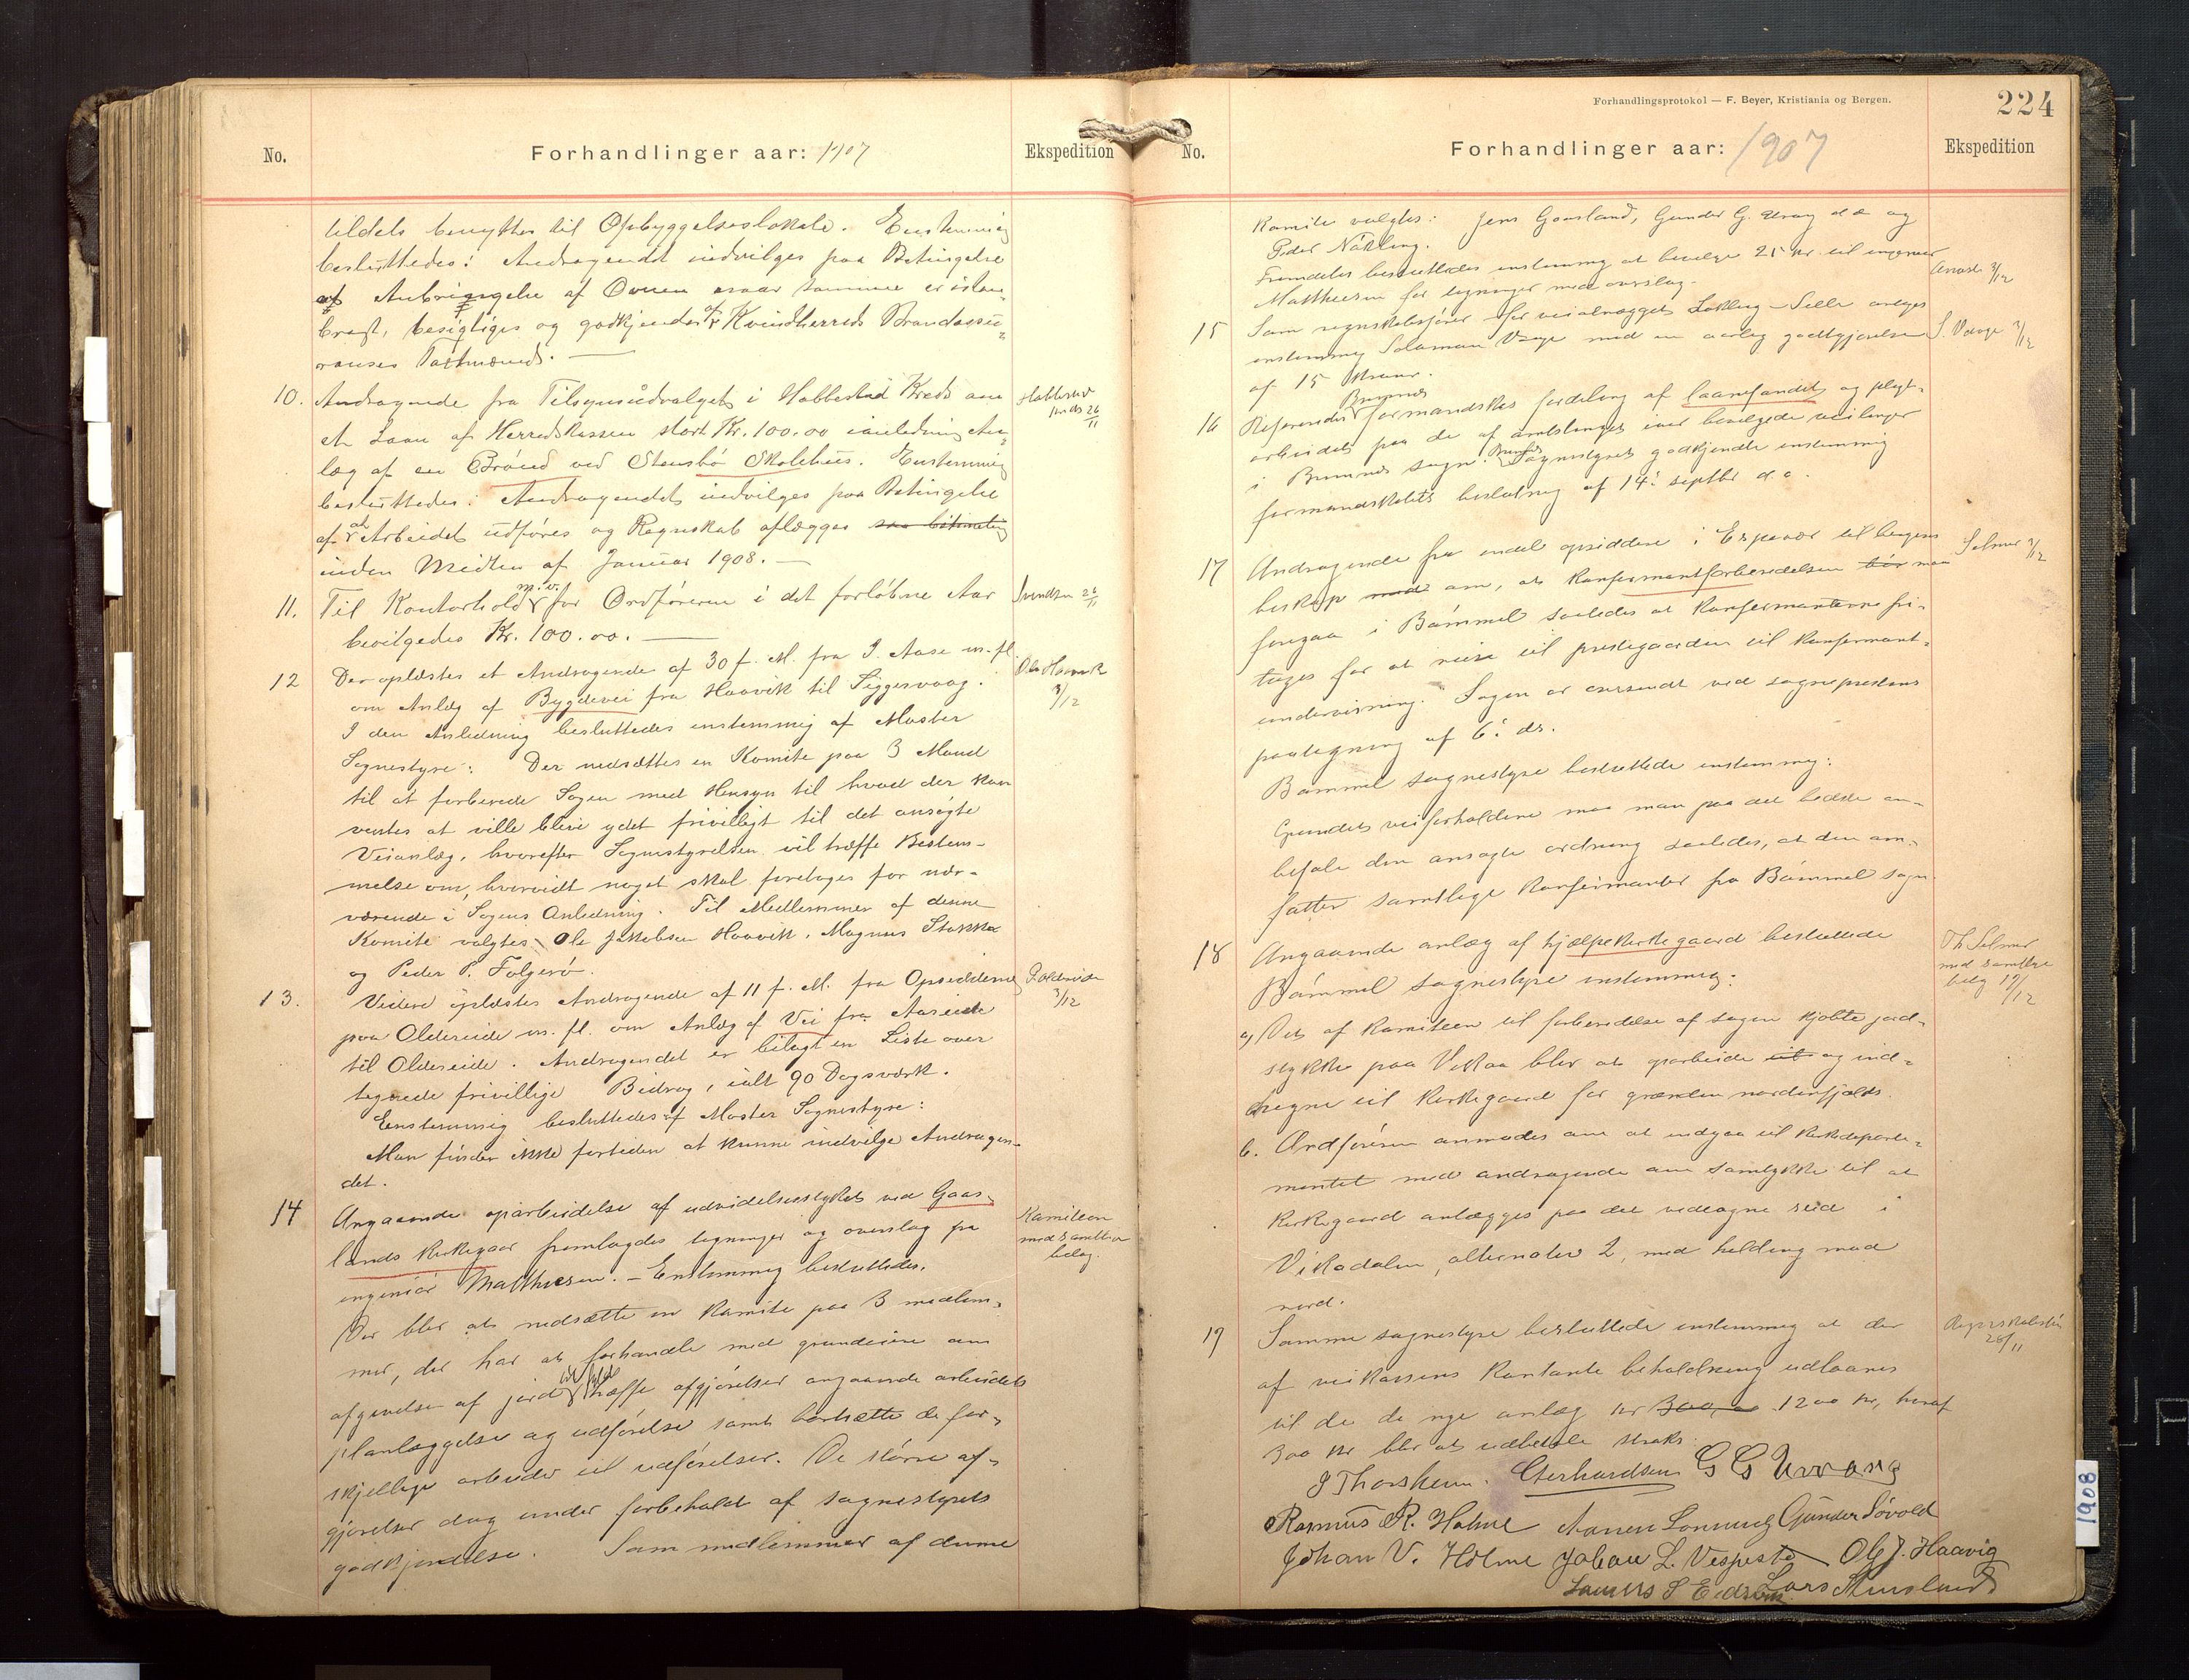 No.
Forhandlinger aar: 1907
Ekspedition
tildels benyttes til Opbyggelseslokale. Enstemmig
besluttedes: Andragendet indvilges paa Betingelse
af Anbringelse af Ovnen naar samme er istan-
bragt, besigtiges og godkjendes af Kvindherreds Brandassu-
ranses Taxtmænd.
10. Andragende fra Tilsynsudvalget i Habbestad Kreds om
et Laan af Herredskassen stort Kr. 100.00 i anledning An-
læg af en Brönd ved Stensbö Skolehus. Enstemmig
besluttedes: Andragendet indvilges paa Betingelse
af at Arbeidet udføres og Regnskab aflægges
inden Midten af Januar 1908.
Habbestad
Kreds 26/11
11. Til Kontorhold m.v. for Ordføreren i det forløbne Aar
bevilgedes Kr. 100.00.
Svendsen 26/11
12 Der oplæstes et Andragende af 30 f. M. fra I. Aase m. fl.
om Anlæg af Bygdevei fra Haavik til Siggesvaag.
I den Anledning besluttedes enstemmig af Moster
Sognestyre: Der nedsættes en Komite paa 3 Mand
til at forberede Sagen med Hensyn til hvad der kan
ventes at ville blive ydet frivilligt til det ansøgte
Veianlæg, hvorefter Sognestyrelsen vil træffe Bestem-
melse om, hvorvidt noget skal foretages for nær-
værende i Sagens Anledning. Til Medlemmer af denne
Komite valgtes Ole Jakobsen Haavik, Magnus Stokka
og Peder P. Folgerö.
Ole Haavik
3/12
13. Videre oplæstes Andragende af 11 f. M. fra Opsidderne
paa Oldereide m. fl. om Anlæg af Vei fra Aareide
til Oldereide. Andragendet er bilagt en Liste over
tegnede frivillige Bidrag, ialt 90 Dagsværk.
Enstemmig besluttedes af Moster Sognestyre:
Man finder ikke fortiden at kunne indvilge Andragen-
det.
Oldereide
3/12
14 Angaaende oparbeidelse af udvidelsesstykket ved Gaas-
lands Kirkegaar fremlagdes tegninger og overslag fra
ingeniör Matthiesen. – Enstemmig besluttedes.
Der bliver at nedsætte en Komite paa 3 medlem-
mer, der har at forhandle med grundeierne om
afgivelse af jord til fyld træffe afgjørelser angaaende arbeidets
planlæggelse og udførelse samt bortsætte de for-
skjellige arbeider til udførelser. De større af-
gjørelser dog under forbehold af sognestyrets
godkjendelse. Som medlemmer af denne
Komiteen
med samtlige
bilag.
Forhandlingsprotokol — F. Beyer, Kristiania og Bergen.
224
No.
Forhandlinger aar: 1907
Ekspedition
Komite valgtes: Jens Gaasland, Gunder G. Urang og
Peder Nökling.
Fremdeles besluttedes enstemmig at bevilge 25 kr. til ingeniør
Matthiesen for tegninger med overslag.
3/12
15 Som regnskabsfører for veianlægget Løkling – Selle antages
enstemmig Salamon Vaage med en aarlig godtgjørelse
af 15 Kroner.
S. Vaage 3/12
16 Refereredes Bremnes formandskabs fordeling af laanefondet og pligt-
arbeidet paa de af amtstinget iaar bevilgede veilinger
i Bremnes sogn. Bremnes Sognestyret godkjendte enstemmig
formandskabets beslutning af 14. septbr d. a.
17 Andragende fra endel opsiddere i Espevær til bergens
biskop med om, at Konfirmantforberedelsen bör maa
foregaa i Bömmel saaledes at Konfirmanterne fri-
tages for at reise til prestegaarden til Konfirmant-
undervisning. Sagen er oversendt ved sogneprestens
paategning af 6. ds.
Bömmel sognestyre besluttede enstemmig:
Grundet veiforholdene maa man paa det bedste an-
befale den ansøgte ordning saaledes, at den om-
fatter samtlige Konfirmanter fra Bömmel sogn.
Selmer 3/12
18 Angaaende anlæg af hjælpekirkegaard besluttede
Bömmel sognestyre enstemmig:
a) Det af Komiteen til forberedelse af sagen kjøbte jord-
stykke paa Vikaa blir at oparbeide til og ind-
hegne til Kirkegaard for grænden nordenfjelds.
b. Ordføreren anmodes om at indgaa til Kirkedeparte-
mentet med andragende om samtykke til at
Kirkegaard anlægges paa det vedtagne sted i
Vikadalen, alternativ 2, med helding mod
nord.
Th Selmer
med samtlige
bilag 17/12
19 Samme sognestyre besluttede enstemmig at der
af veikassens Kontante beholdning udlaanes
til de nye anlæg kr 300,00 1200 kr, hvoraf
300 kr blir at udbetale straks.
Regnskabsf.
28/11
J Thorsheim. Gerhardsen G G Urrang
Rasmus R. Holme Aanen Lønning Gunder Sövold
Johan V. Holme Johan L. Vespestad Ole J. Haavig
Laurits S Eidsvik Lars Stuesland
1908